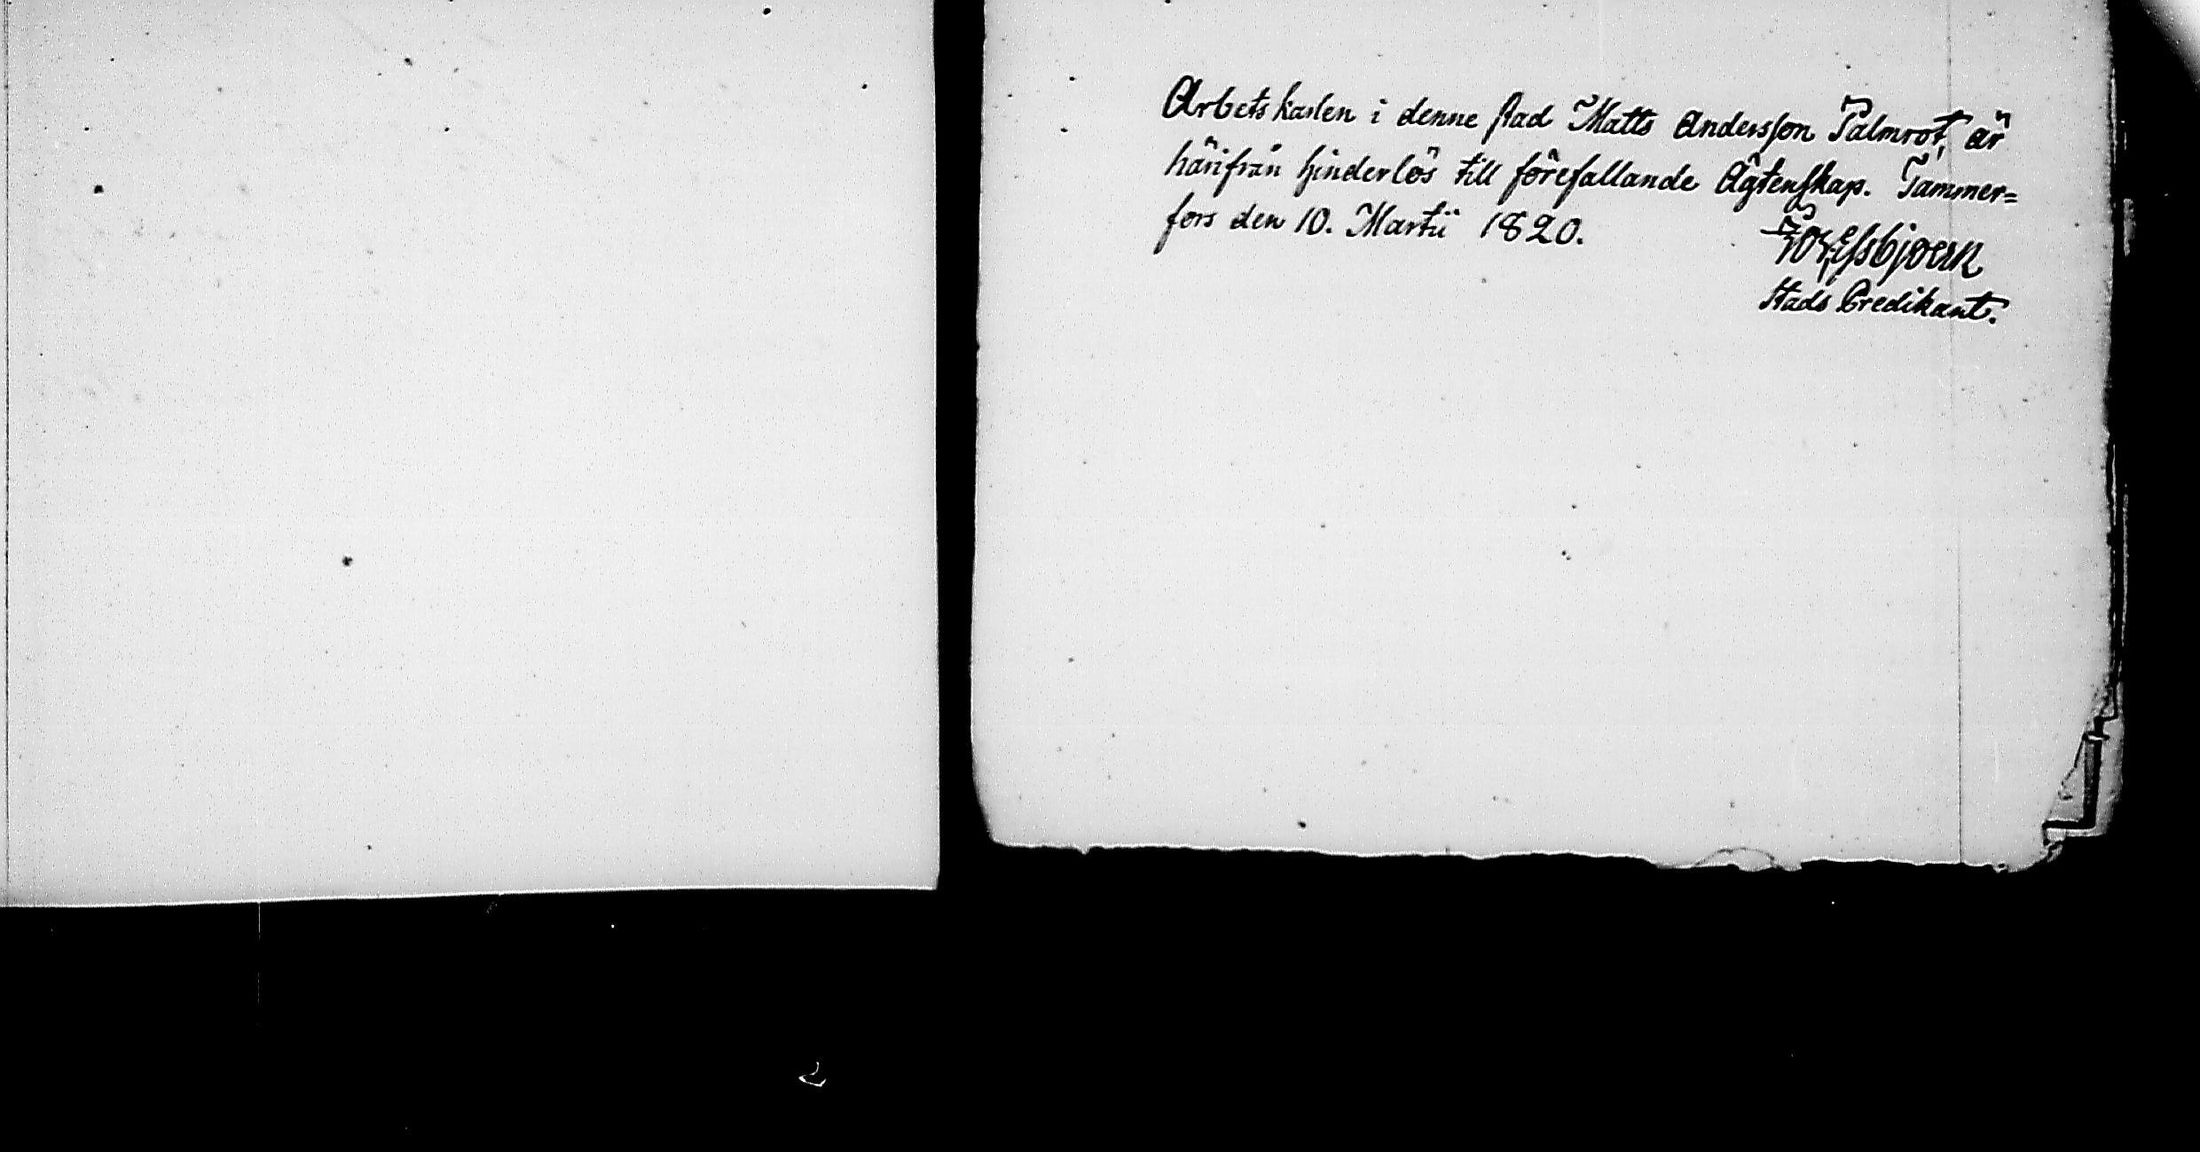 Arbetskarlen i denne stad Matts Andersson Palmrot, är
härifrån hinderlös till förefallande Ägtenskap. Tammer=
fors den 10. Martii 1820.
Essbjoern
Stads Predikant.